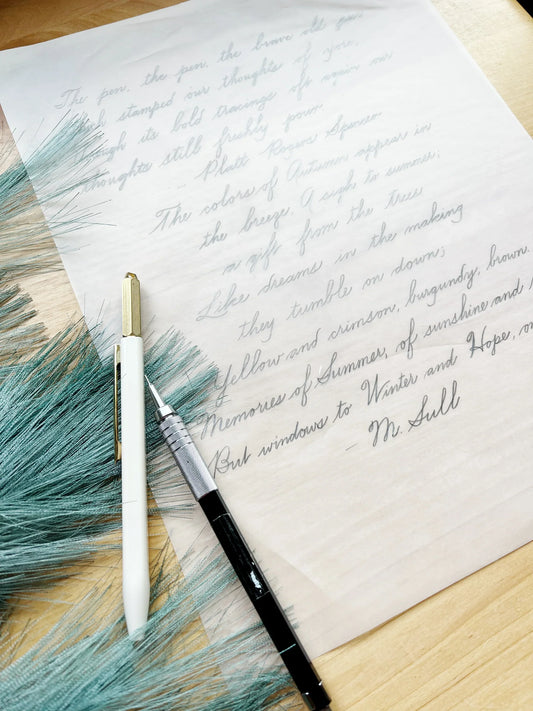 The pen, the pen, the brave old pen
stamped our thoughts of yore,
its bold tracings oft again our
thoughts still freshly pour.
... Platt Rogers Spencer
The colors of Autumn appear in
the breeze. A sigh to summer,
a gift from the trees
Like dreams in the making
they tumble on down;
Yellow and crimson, burgundy, brown.
Memories of Summer, of sunshine and
But windows to Winter and Hope,
- M. Sull